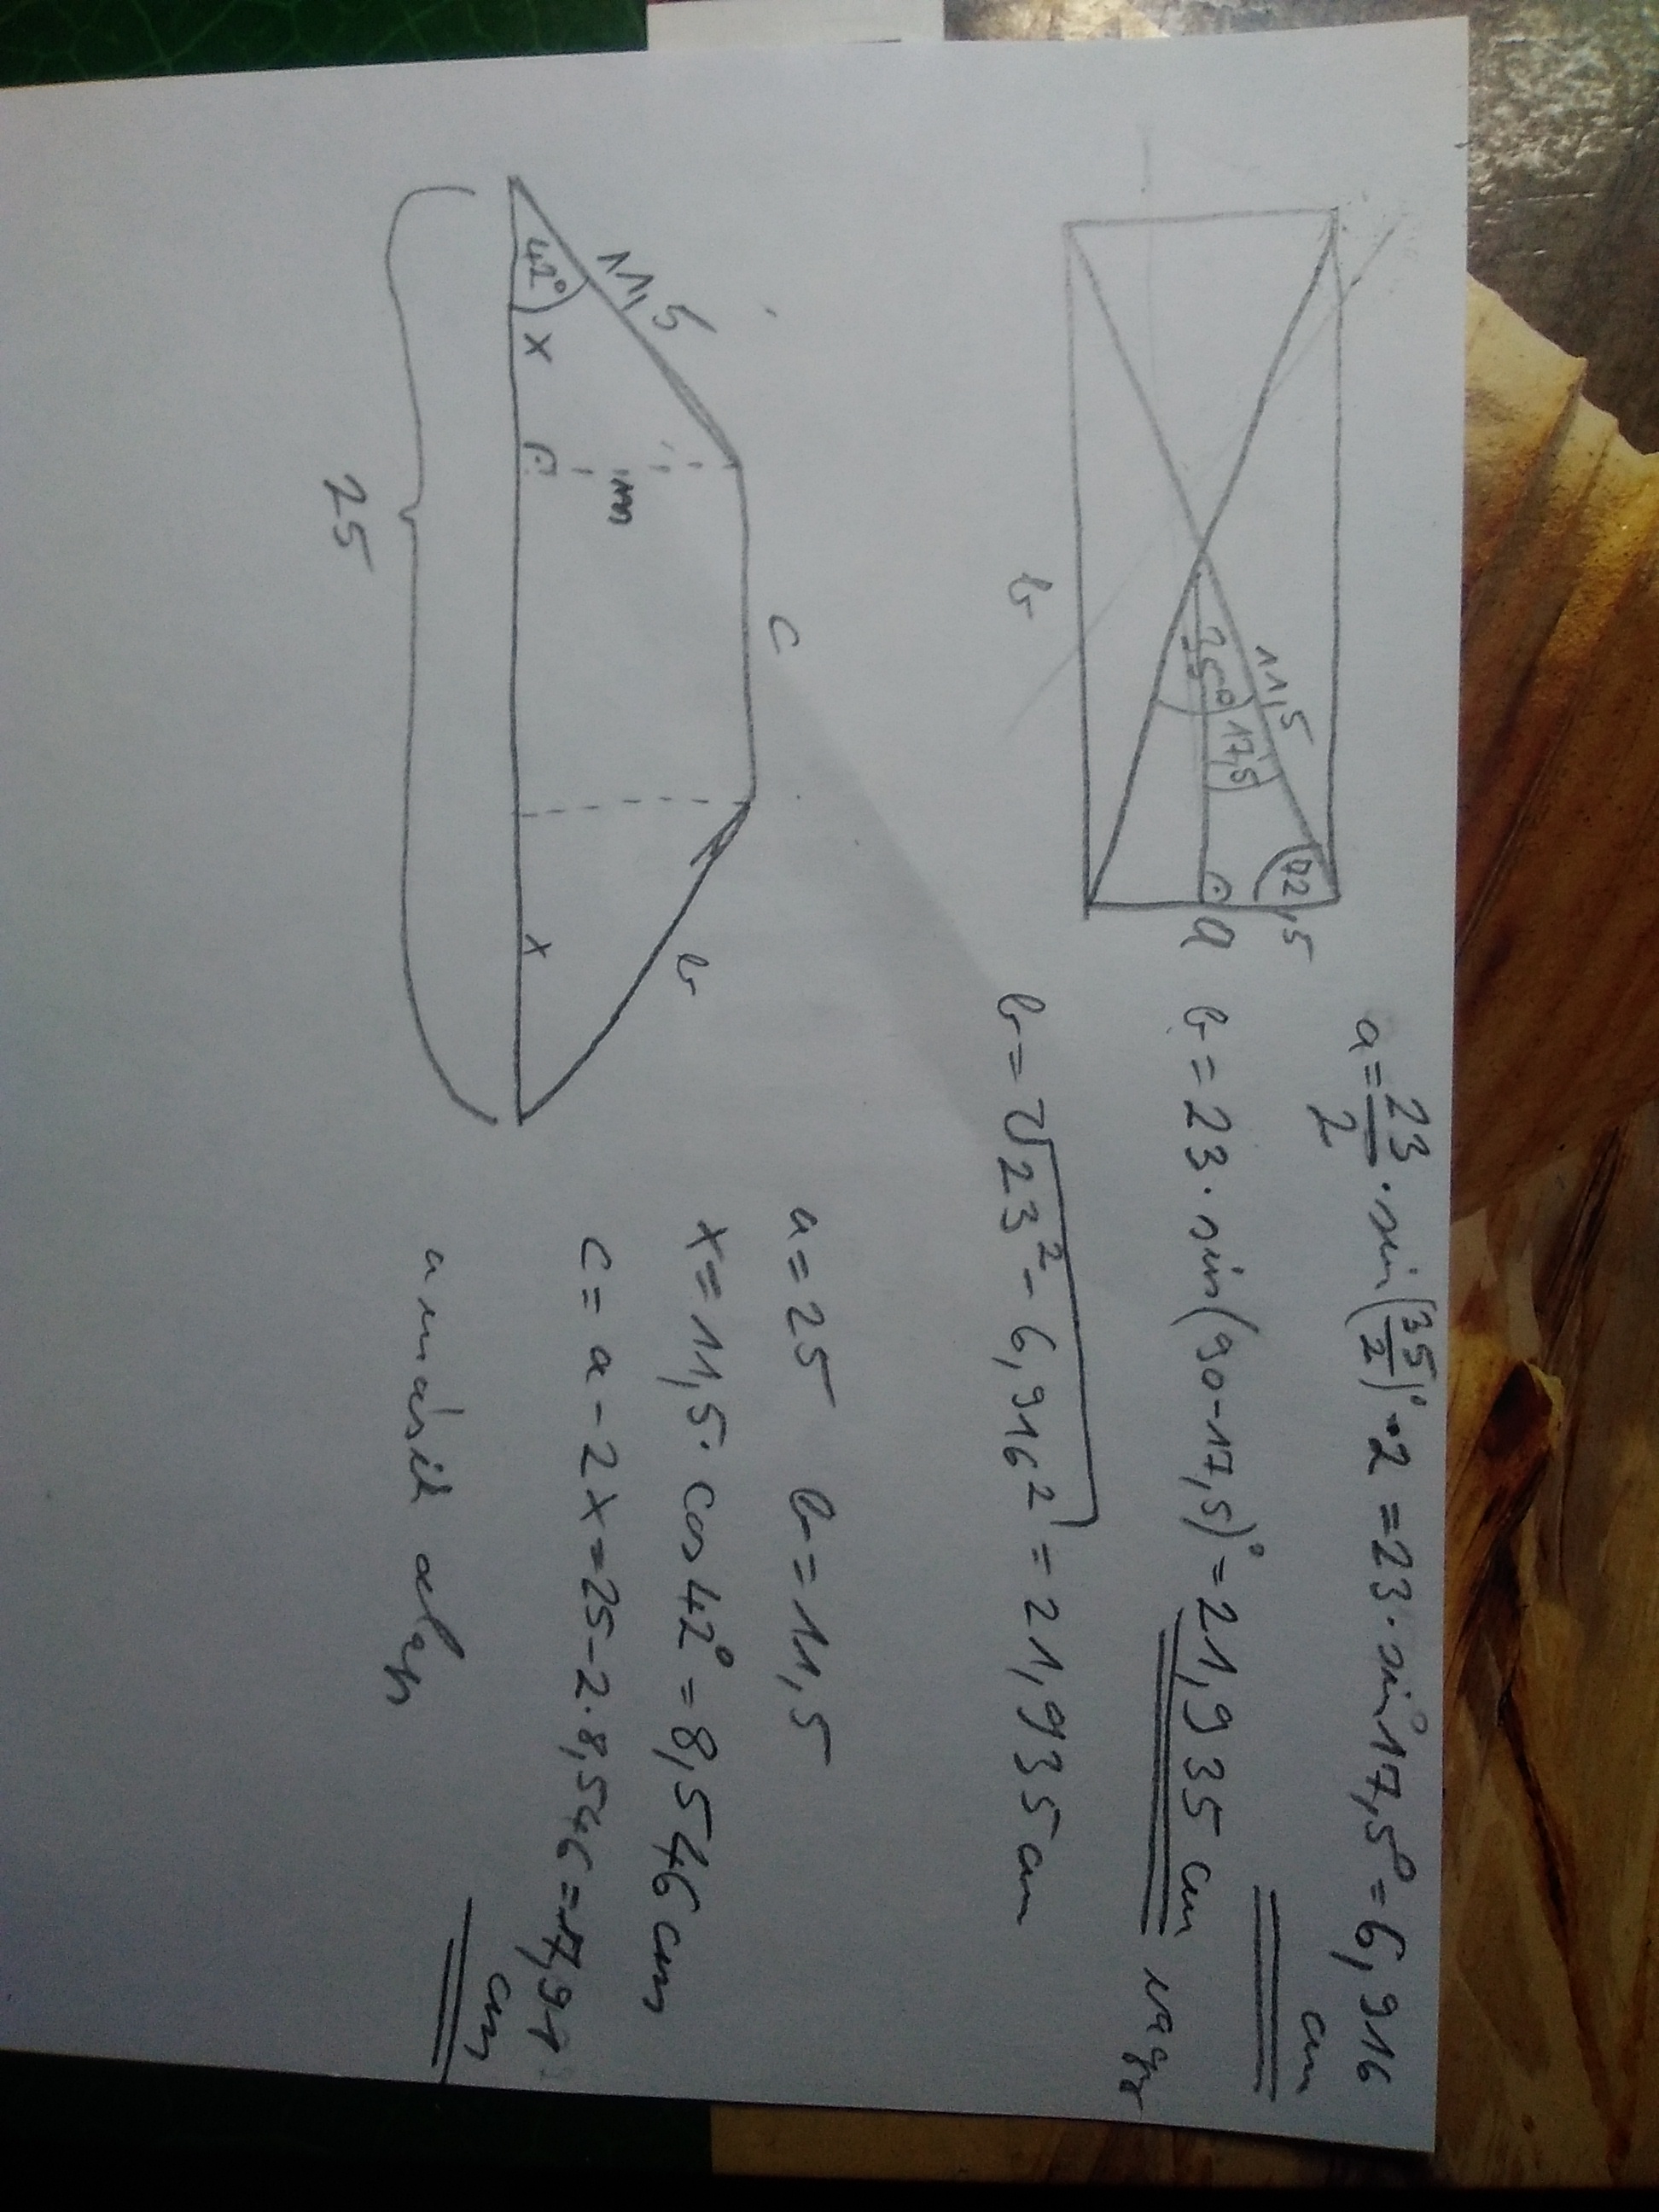 11,5
35°
17,5
72,5
a
b
a = 23/2 · sin(35/2)° · 2 = 23 · sin 17,5° = 6,916 cm
b = 23 · sin(90-17,5)° = 21,935 cm vagy
b = √23² - 6,916² = 21,935 cm
42°
11,5
x
m
c
b
x
25
a = 25 b = 11,5
x = 11,5 · cos 42° = 8,546 cm
c = a - 2x = 25 - 2·8,546 = 7,91 cm
a másik alap